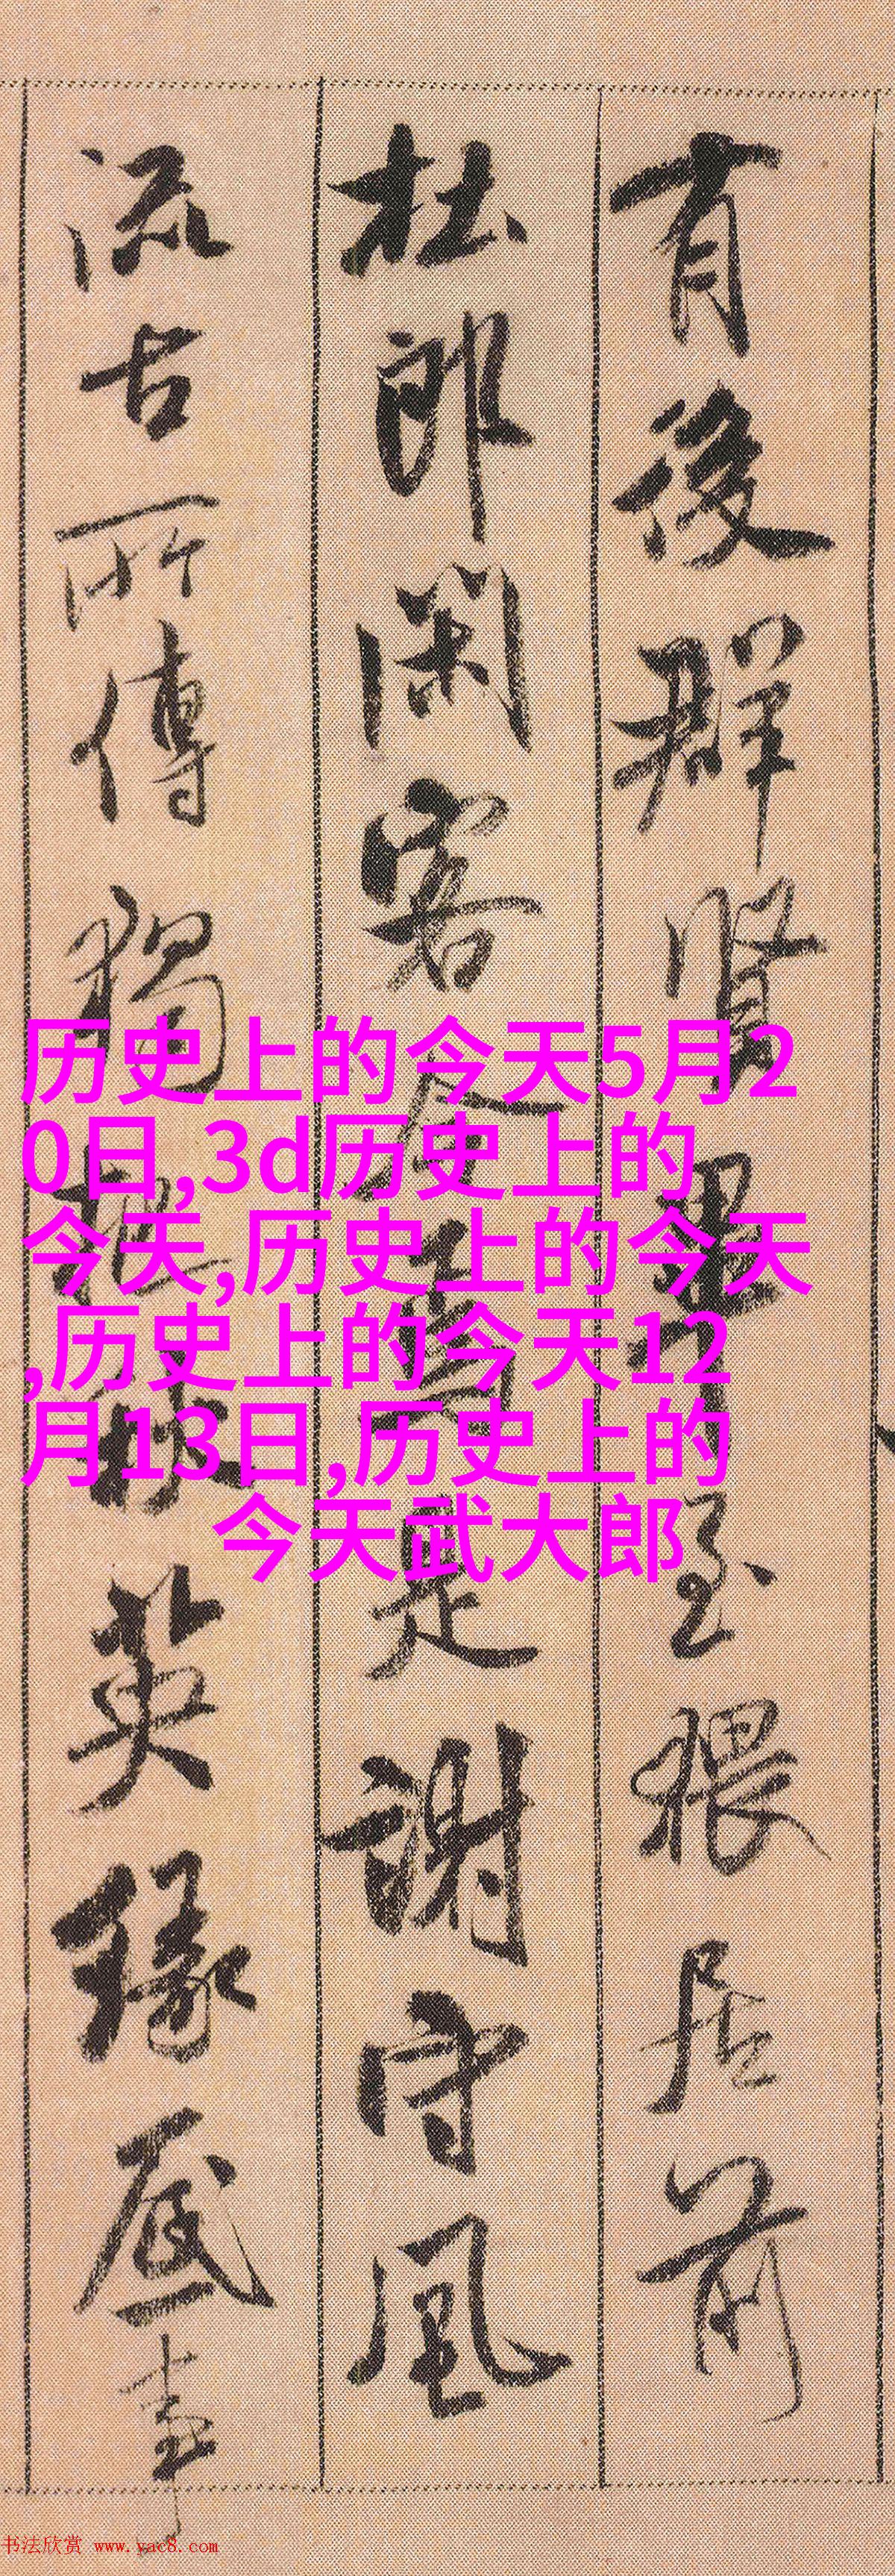 有後群賢畢至猥居前
杜郎閑客今焉是謝守風
流古所傳獨把秋英緣底事
历史上的今天5月2
0日,3d历史上的
今天,历史上的今天
,历史上的今天12
月13日,历史上的
今天武大郎
书法欣赏 www.yac8.com